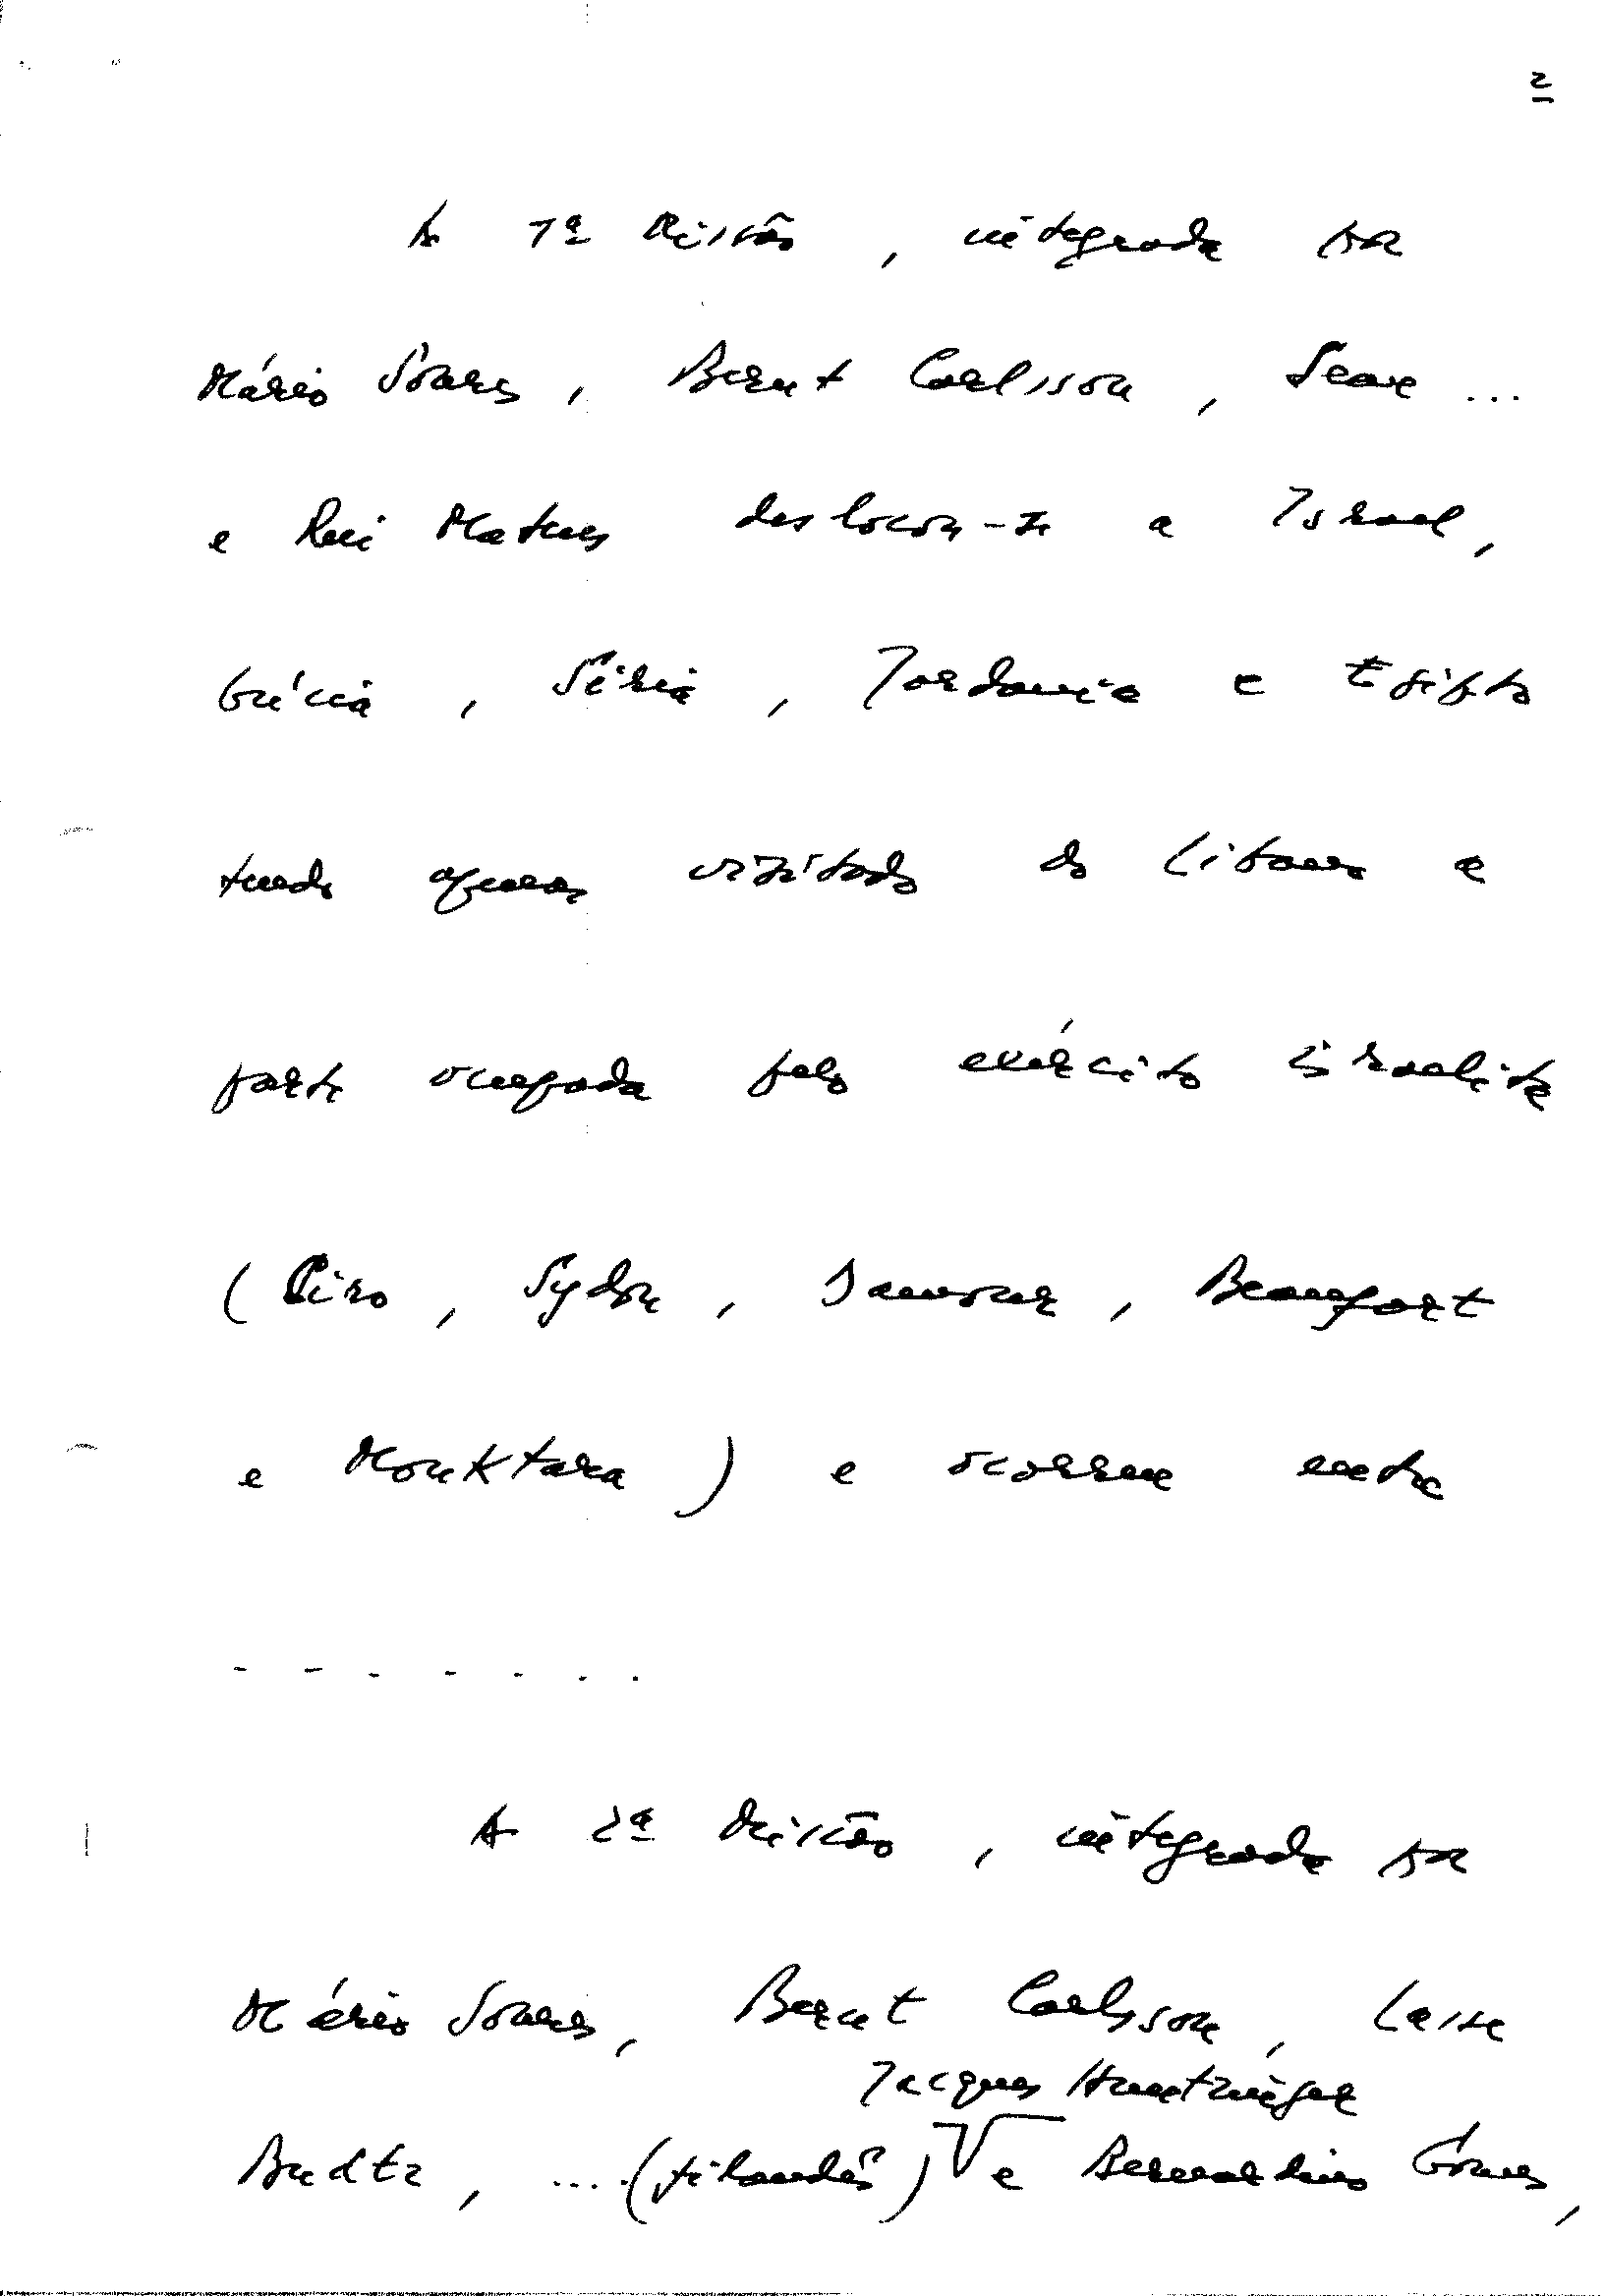 2
A 1ª Missão, integrada por
Mário Soares, Bernt Carlsson, ...
e Rui Mateus deslocou-se a Israel,
Grécia, Síria, Jordania e Egipto
tendo apenas visitado do Libano a
parte ocupada pelo exército israelita
(Tiro, Sydon, Damour, Beaufort
e Mouktara) e ocorreu entre
- - - - - . .
A 2ª Missão, integrada por
Mário Soares, Bernt Carlsson, Lasse
Jacques Huntzinger
Budtz, ....(filandês) e Bernardino Gomes,